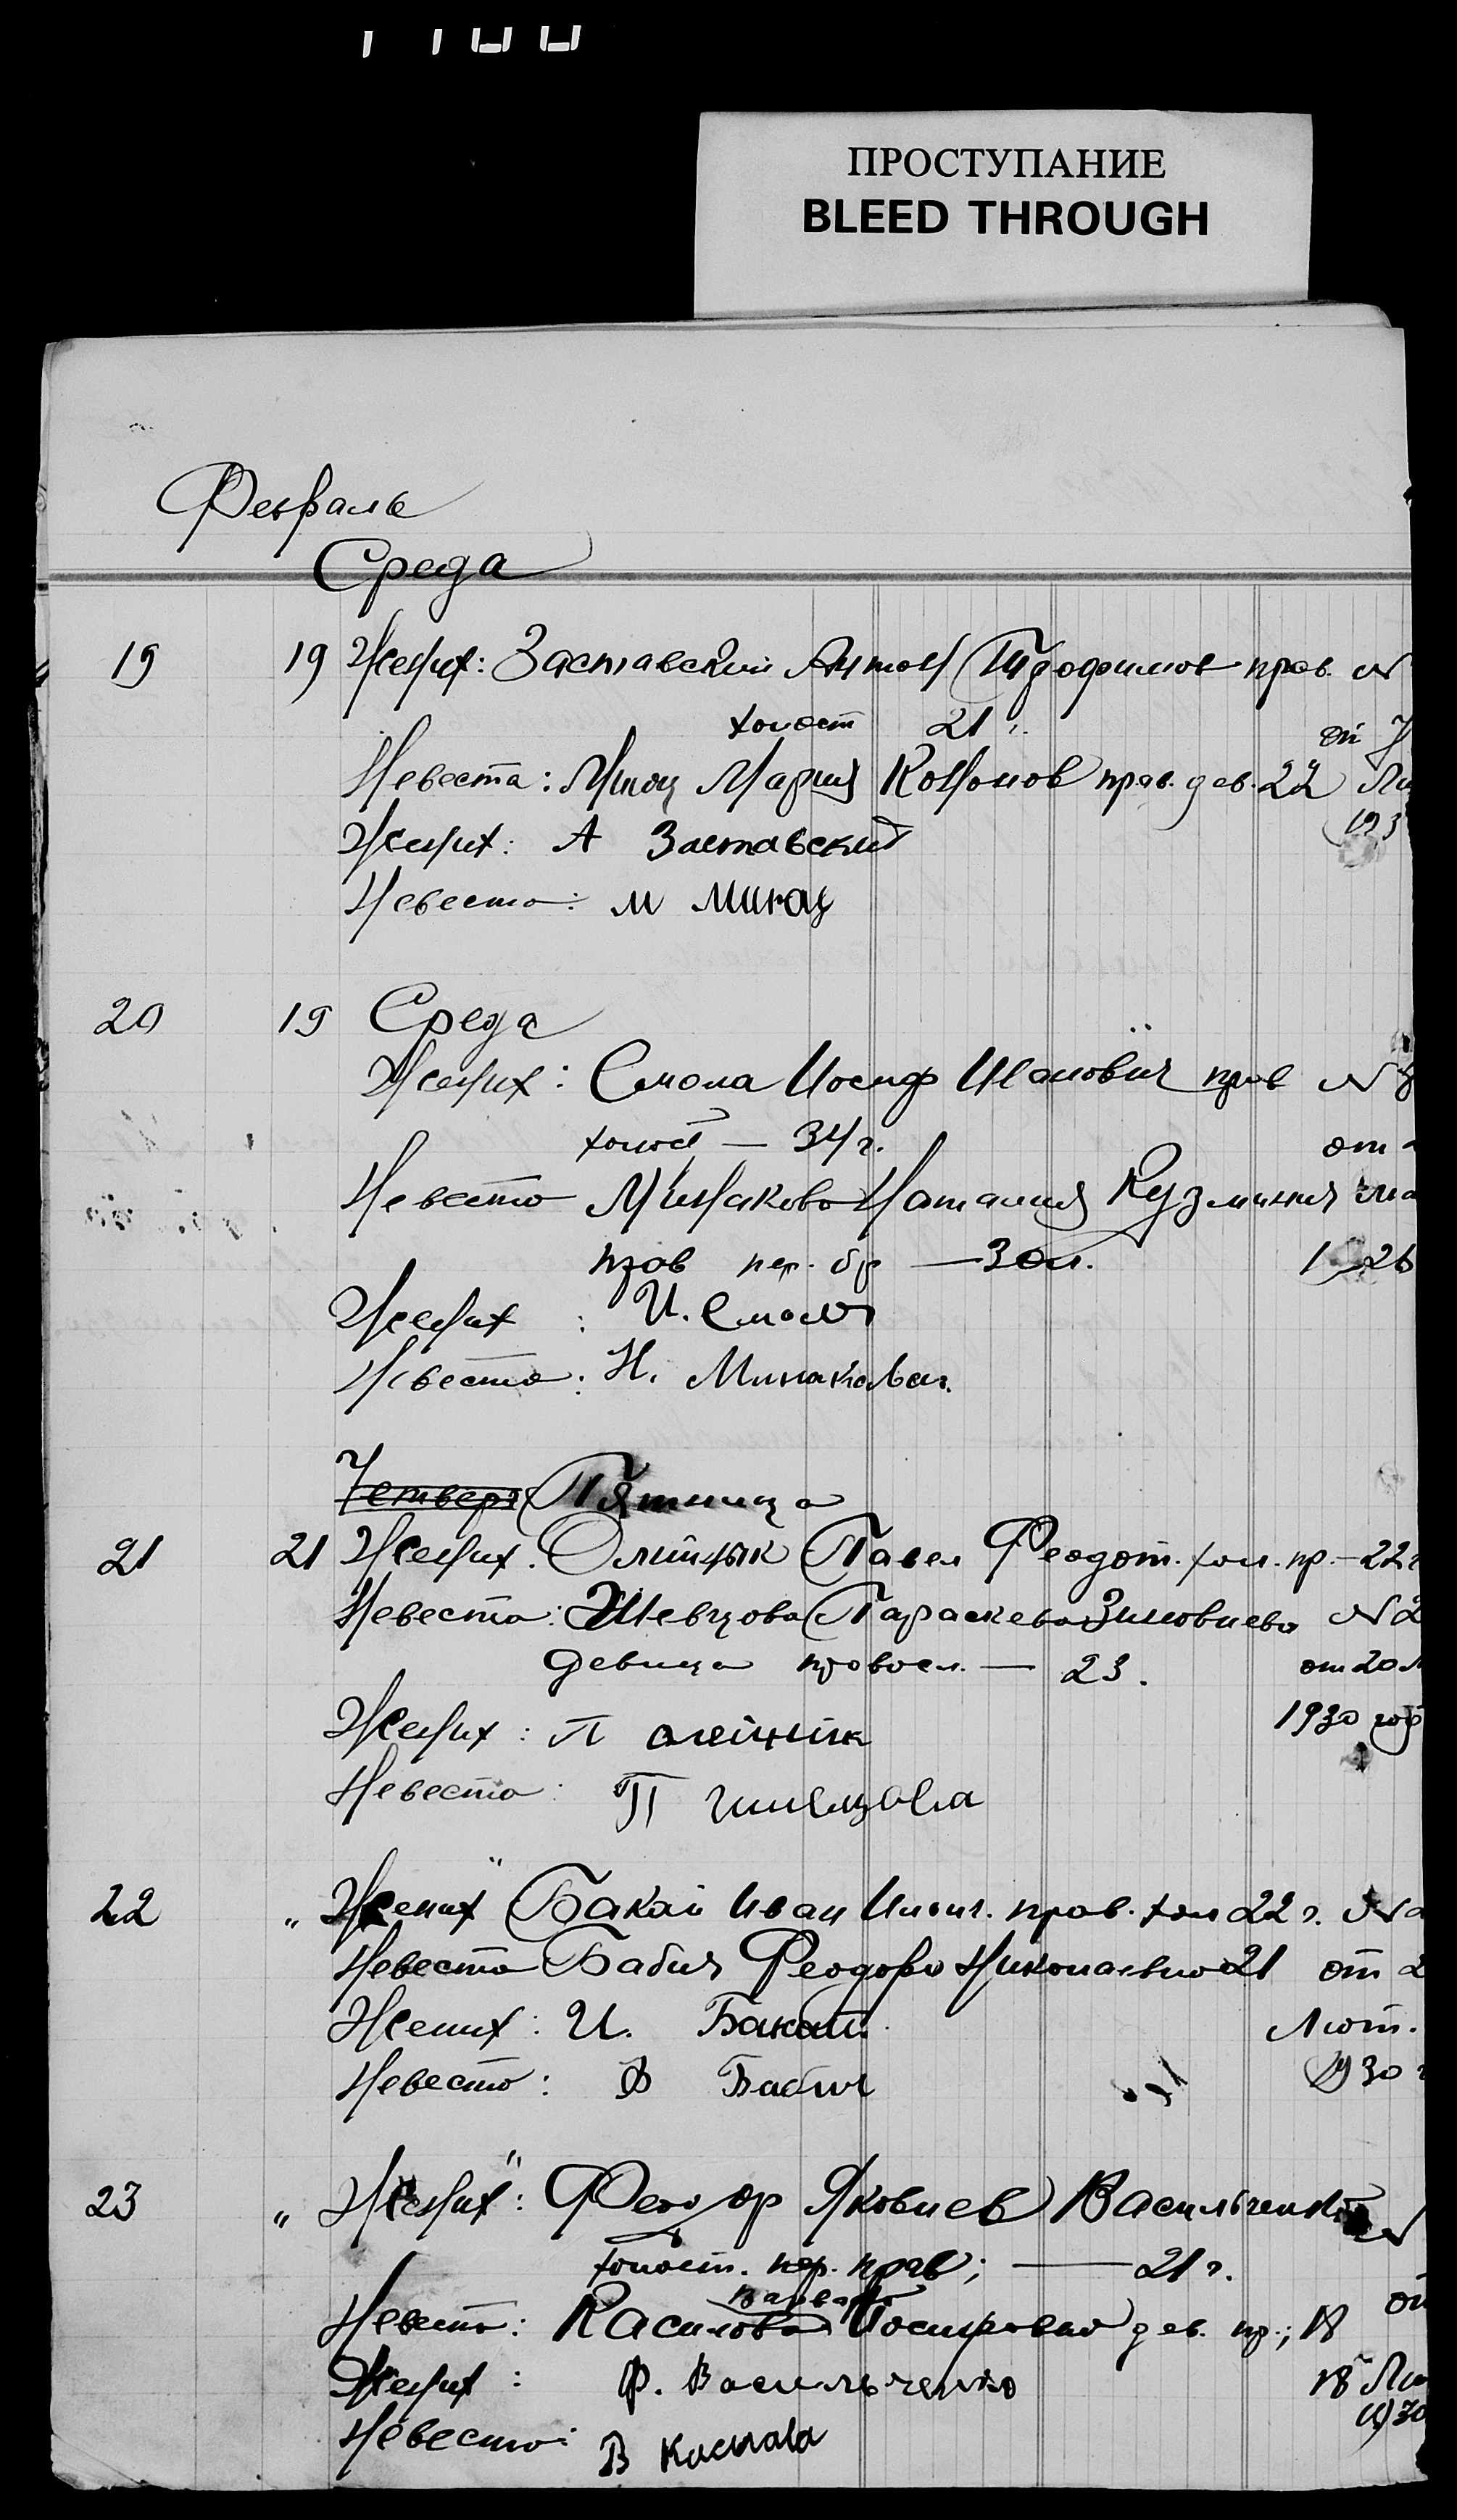 ПРОСТУПАНИЕ
BLEED THROUGH
Февраль
Среда
19 19 Жених: Заставский Антон Трофимов прав. N
холост 21 г.
Невеста: Минац Мария Кононов прав. дев. 22
Жених: А Заставский
193
Невеста: М Минац
20 19 Среда
Жених: Смола Иосиф Иванович прав N
холост — 34 г. от
Невеста Минакова Наталия Кузминич
прав пер. бр — 30 л. 1926
Жених: И. Смола
Невеста: Н. Минакова
Четверг Пятница
21 21 Жених. Олийнык Павел Феодот. хол. пр. — 22 г
Невеста: Шевцова Параскева Зиновиева N 2
девица правосл. — 23. от 20 л
Жених: П олейник 1930 год
Невеста: П шевцова
22 " Жених Бакай Иван прав. хол 22 г. N
Невеста Бабич Феодора Николаевна 21 от 2
Жених: И. Бакай Лют.
Невеста: Ф Бабич 1930 г
23 " Жених: Феодор Яковлев Васильченко N
холост. пер. прав; — 21 г.
Варвара
Невеста: Касилова Иосифовна дев. пр.; 18 от
Жених: Ф. Васильченко 18 Лю
1930
Невеста: В Касилова